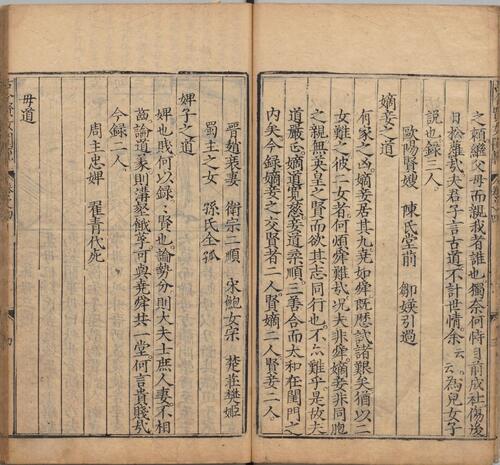 之賴繼父母而親我者誰也獨奈何恃目前成社傷後
日於離哉夫君子言古道不計世情余云云為兒女子
說也録三人
歐陽賢嫂　陳氏堂前　鄒媖引過
嫡妾之道
有家之凶嫡妾居其九堯如舜既歷試諸艱矣猶以二
女難之彼二女者何煩舜難哉况夫非舜嫡妾非同胞
之親無英皇之賢而欲其志同行也不亦難乎是故夫
道嚴正嫡道寬慈妾道柔順三善合而太和在閨門之
内矣今録嫡妾之交賢者二人賢嫡二人賢妾二人
晉趙衰妻　衛宗二順　宋鮑女宗　楚莊樊姬
蜀主之女　孫氏全孤
婢子之道
婢也賤何以録賢也論勢分則大夫士庶人妻不相
齒論道義則溝壑餓莩可與堯舜共一堂何言貴賤哉
今録二人
周主忠婢　翟青代死
毋道
四